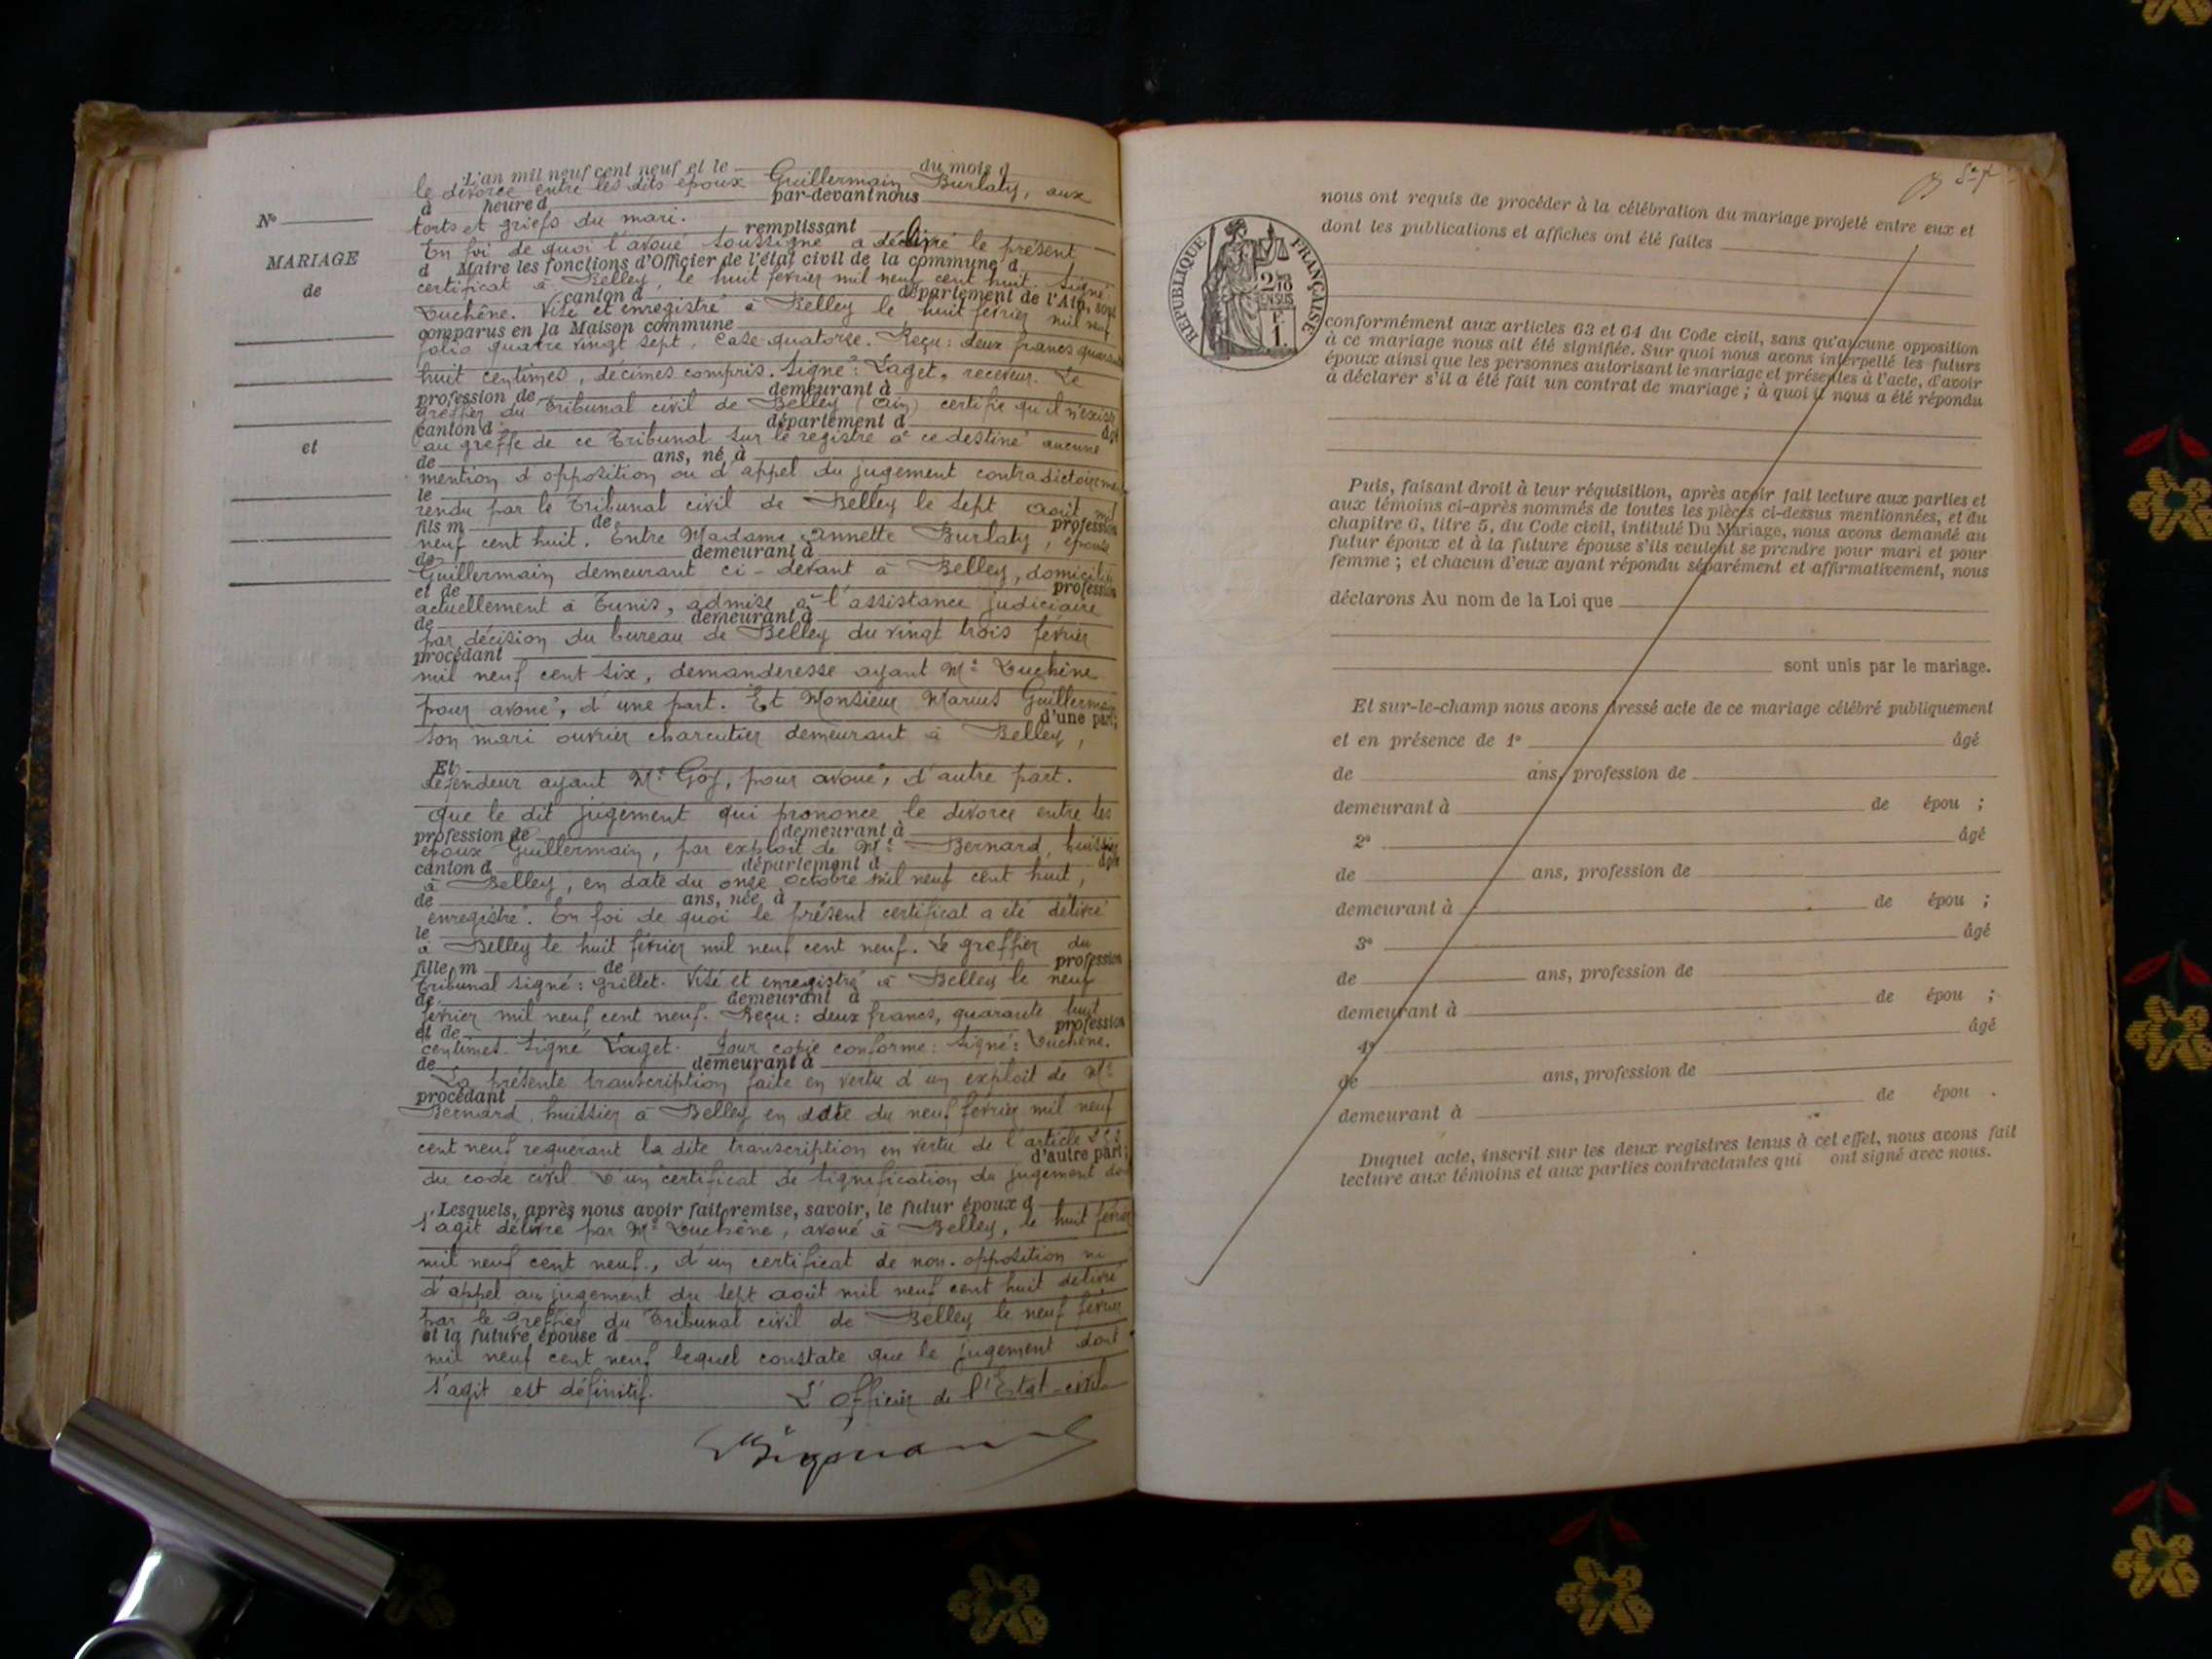 L'an mil neuf cent neuf et le du mois d
le divorce entre les dits époux Guillermain Burlaty, aux
à heure d par-devant nous
torts et griefs du mari.
N° remplissant
En foi de quoi l'avoué soussigné a délivré le présent
MARIAGE
d Maire les fonctions d'Officier de l'état civil de la commune d
certificat à Belley, le huit février mil neuf cent huit. Signé
de
canton d département de l'Ain, sont
Duchêne. Visé et enregistré à Belley le huit février mil neuf
comparus en la Maison commune
folio quatre vingt sept, case quatorze. Reçu: deux francs quarante
huit centimes, décimes compris. Signé: Laget, receveur. Le
profession de demeurant à
greffier du Tribunal civil de Belley (Ain) certifie qu'il n'existe
canton d département d âgé
au greffe de ce Tribunal sur le registre à ce destiné aucune
et
de ans, né à
mention d'opposition ou d'appel du jugement contradictoirement
le
rendu par le Tribunal civil de Belley le sept août mil
fils m de profession
neuf cent huit. Entre Madame Annette Burlaty, épouse
de demeurant à
Guillermain demeurant ci-devant à Belley, domiciliée
et de profession
actuellement à Tunis, admise à l'assistance judiciaire
de demeurant à
par décision du bureau de Belley du vingt trois février
procédant
mil neuf cent six, demanderesse ayant Me Duchêne
pour avoué, d'une part. Et Monsieur Marius Guillermain
d'une part;
son mari ouvrier charcutier demeurant à Belley,
Et
défendeur ayant Me Goy, pour avoué, d'autre part.
Que le dit jugement qui prononce le divorce entre les
profession de demeurant à
époux Guillermain, par exploit de Me Bernard, huissier
canton d département d âgée
à Belley, en date du onze octobre mil neuf cent huit,
de ans, née à
enregistré. En foi de quoi le présent certificat a été délivré
le
à Belley le huit février mil neuf cent neuf. Le greffier du
fille m de profession
Tribunal signé: Grillet. Visé et enregistré à Belley le neuf
de demeurant à
février mil neuf cent neuf. Reçu: deux francs, quarante huit
et de profession
centimes. Signé Laget. Pour copie conforme: signé: Duchêne.
de demeurant à
La présente transcription faite en vertu d'un exploit de Me
procédant
Bernard huissier à Belley en date du neuf février mil neuf
cent neuf requérant la dite transcription en vertu de l'article
d'autre part;
du code civil. D'un certificat de signification du jugement dont
Lesquels, après nous avoir fait remise, savoir, le futur époux d
s'agit délivré par Me Duchêne, avoué à Belley, le huit février
mil neuf cent neuf, d'un certificat de non-opposition ni
d'appel au jugement du sept août mil neuf cent huit délivré
par le Greffier du Tribunal civil de Belley le neuf février
et la future épouse d
mil neuf cent neuf lequel constate que le jugement dont
s'agit est définitif. L'Officier de l'Etat-civil
nous ont requis de procéder à la célébration du mariage projeté entre eux et
dont les publications et affiches ont été faites
REPUBLIQUE FRANÇAISE
2/10
EN SUS
F.
1.
conformément aux articles 63 et 64 du Code civil, sans qu'aucune opposition
à ce mariage nous ait été signifiée. Sur quoi nous avons interpellé les futurs
époux ainsi que les personnes autorisant le mariage et présentes à l'acte, d'avoir
à déclarer s'il a été fait un contrat de mariage ; à quoi il nous a été répondu
Puis, faisant droit à leur réquisition, après avoir fait lecture aux parties et
aux témoins ci-après nommés de toutes les pièces ci-dessus mentionnées, et du
chapitre 6, titre 5, du Code civil, intitulé Du Mariage, nous avons demandé au
futur époux et à la future épouse s'ils veulent se prendre pour mari et pour
femme ; et chacun d'eux ayant répondu séparément et affirmativement, nous
déclarons Au nom de la Loi que
sont unis par le mariage.
Et sur-le-champ nous avons dressé acte de ce mariage célébré publiquement
et en présence de 1° âgé
de ans, profession de
demeurant à de épou ;
2° âgé
de ans, profession de
demeurant à de épou ;
3° âgé
de ans, profession de
demeurant à de épou ;
4° âgé
de ans, profession de
demeurant à de épou .
Duquel acte, inscrit sur les deux registres tenus à cet effet, nous avons fait
lecture aux témoins et aux parties contractantes qui ont signé avec nous.